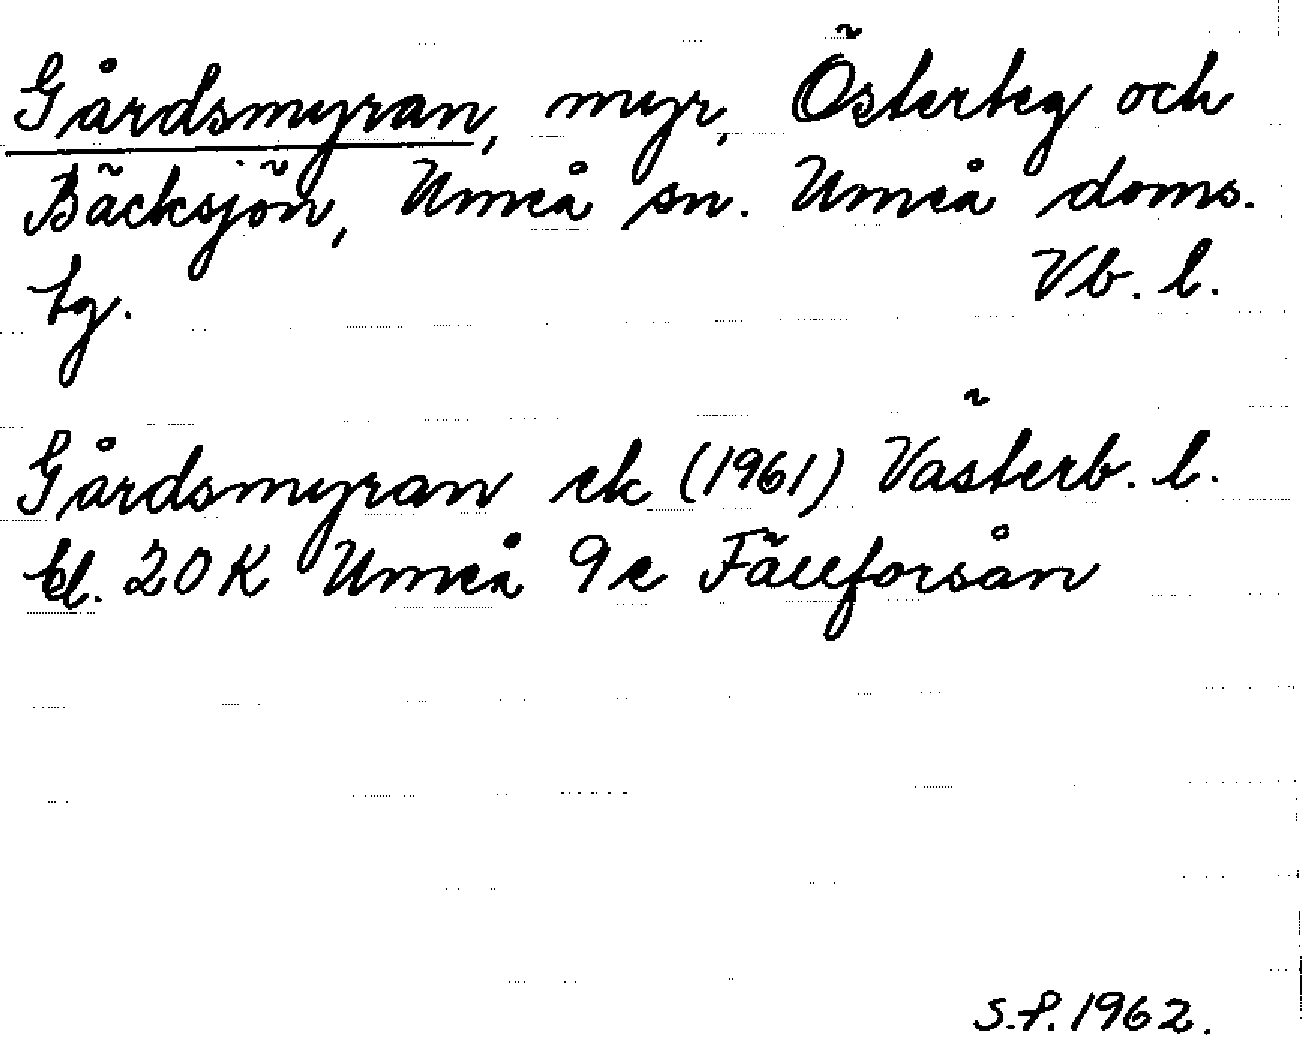 Gårdsmyran, myr, Österteg och
Bäcksjön, Umeå sn. Umeå doms.
tg. Vb. l.
Gårdsmyran ek (1961) Västerb. l.
bl. 20 K Umeå 9 e Fällforsån
S.P. 1962.